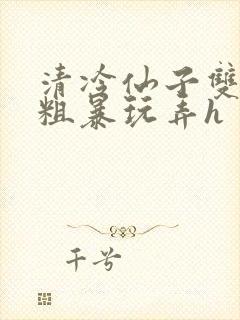 清冷仙子雙
粗暴玩弄h
千兮